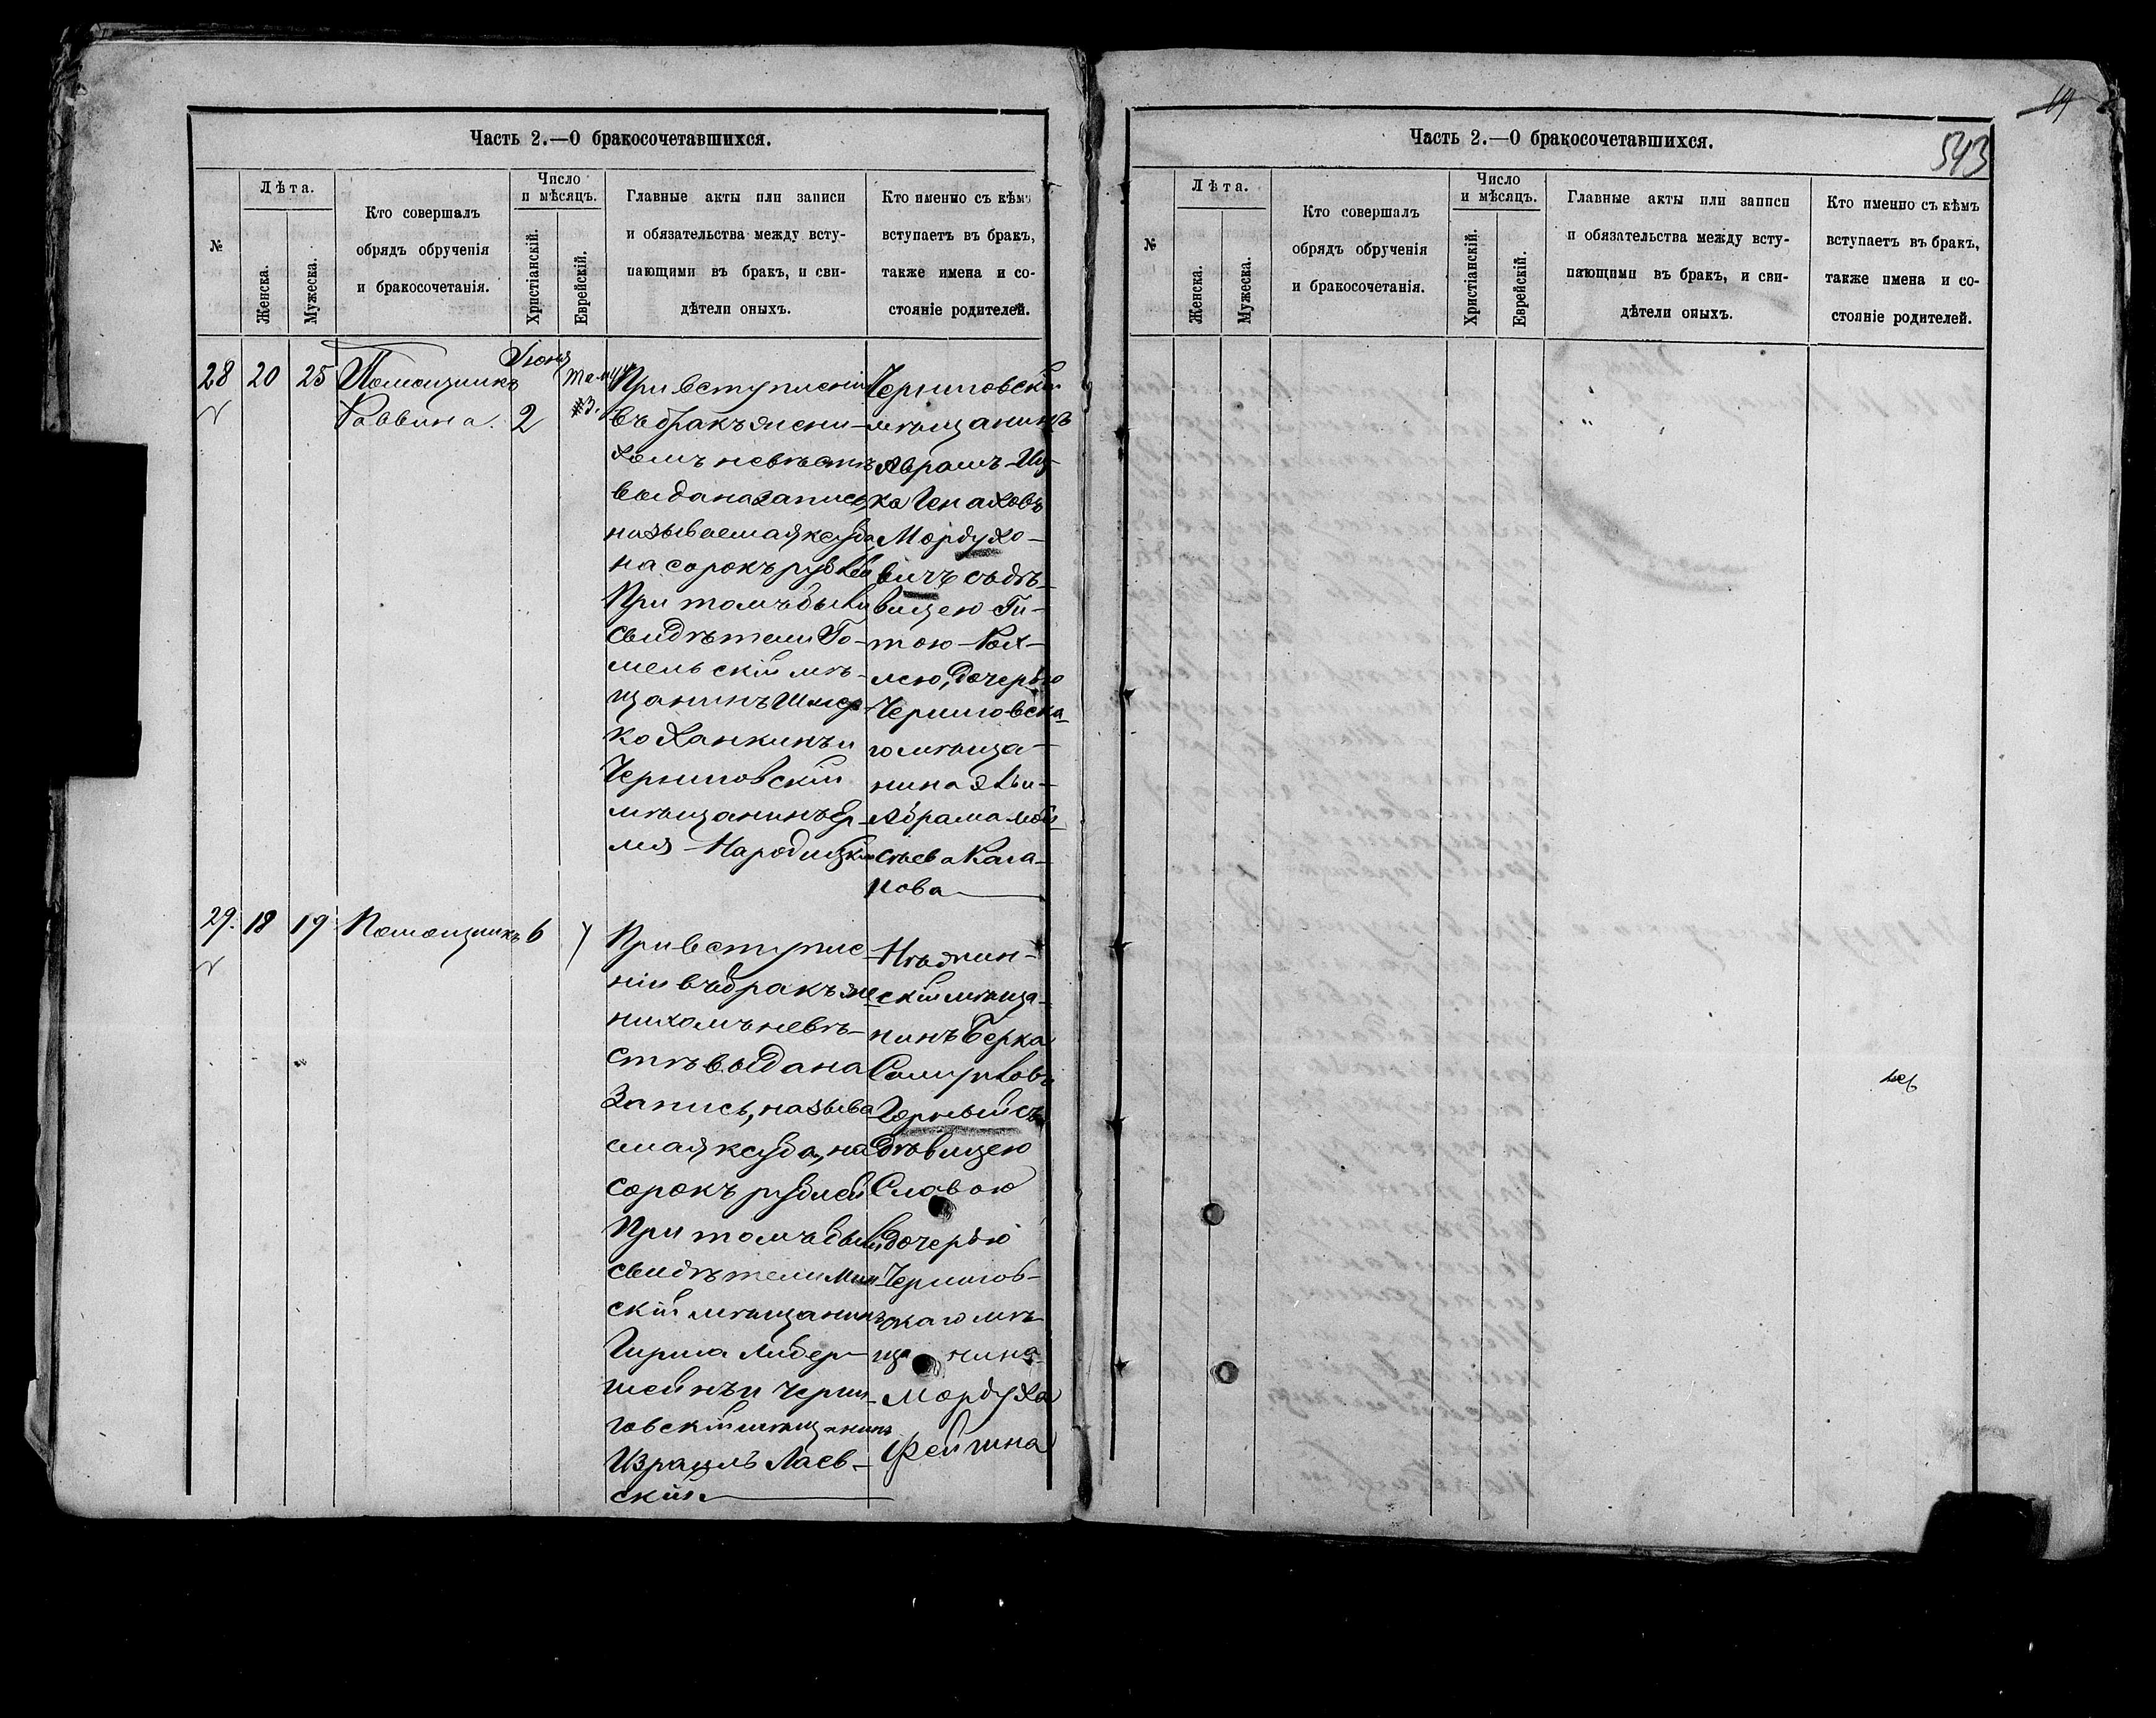 19
543
Часть 2.—О бракосочетавшихся.
№
Лѣта.
Женска.
Мужеска.
Кто совершалъ
обрядъ обрученія
и бракосочетанія.
Число
и мѣсяцъ.
Христіанскій.
Еврейскій.
Главные акты или записи
и обязательства между всту-
пающими въ бракъ, и сви-
дѣтели оныхъ.
Кто именно съ кѣмъ
вступаетъ въ бракъ,
также имена и со-
стояніе родителей.
28 20 25
Помощникъ
Раввина.
Іюня
2
3.
При вступленіи
въ бракъ жени-
хомъ невѣстѣ
выдана запись,
называемая ксуба
на сорокъ рублей
При томъ были
свидѣтели Го-
мельскій мѣ-
щанинъ
Ханкинъ и
Черниговскій
мѣщанинъ
Народицкій
Черниговскій
мѣщанинъ
Абрамъ-Иц-
ка Генаховъ
Мордухо-
вичъ съ дѣ-
вицею Ги-
тою-Рах-
лею, дочерью
Черниговска-
го мѣща-
нина
Абрама
Кага-
нова
29. 18 19
Помощникъ
6
7
При вступле-
ніи въ бракъ же-
нихомъ невѣ-
стѣ выдана
Запись, называ-
емая ксуба, на
сорокъ рублей
При томъ были
свидѣтели Мин-
скій мѣщанинъ
Гирша Либер-
и Черни-
говскій мѣщанинъ
Израиль Лаев-
скій
Нѣжин-
скій мѣща-
нинъ Берка
Самуиловъ
Горный съ
дѣвицею
Славою
дочерью
Чернигов-
скаго мѣ-
щанина
Мордуха
Фейгина
Часть 2.—О бракосочетавшихся.
№
Лѣта.
Женска.
Мужеска.
Кто совершалъ
обрядъ обрученія
и бракосочетанія.
Число
и мѣсяцъ.
Христіанскій.
Еврейскій.
Главные акты или записи
и обязательства между всту-
пающими въ бракъ, и сви-
дѣтели оныхъ.
Кто именно съ кѣмъ
вступаетъ въ бракъ,
также имена и со-
стояніе родителей.